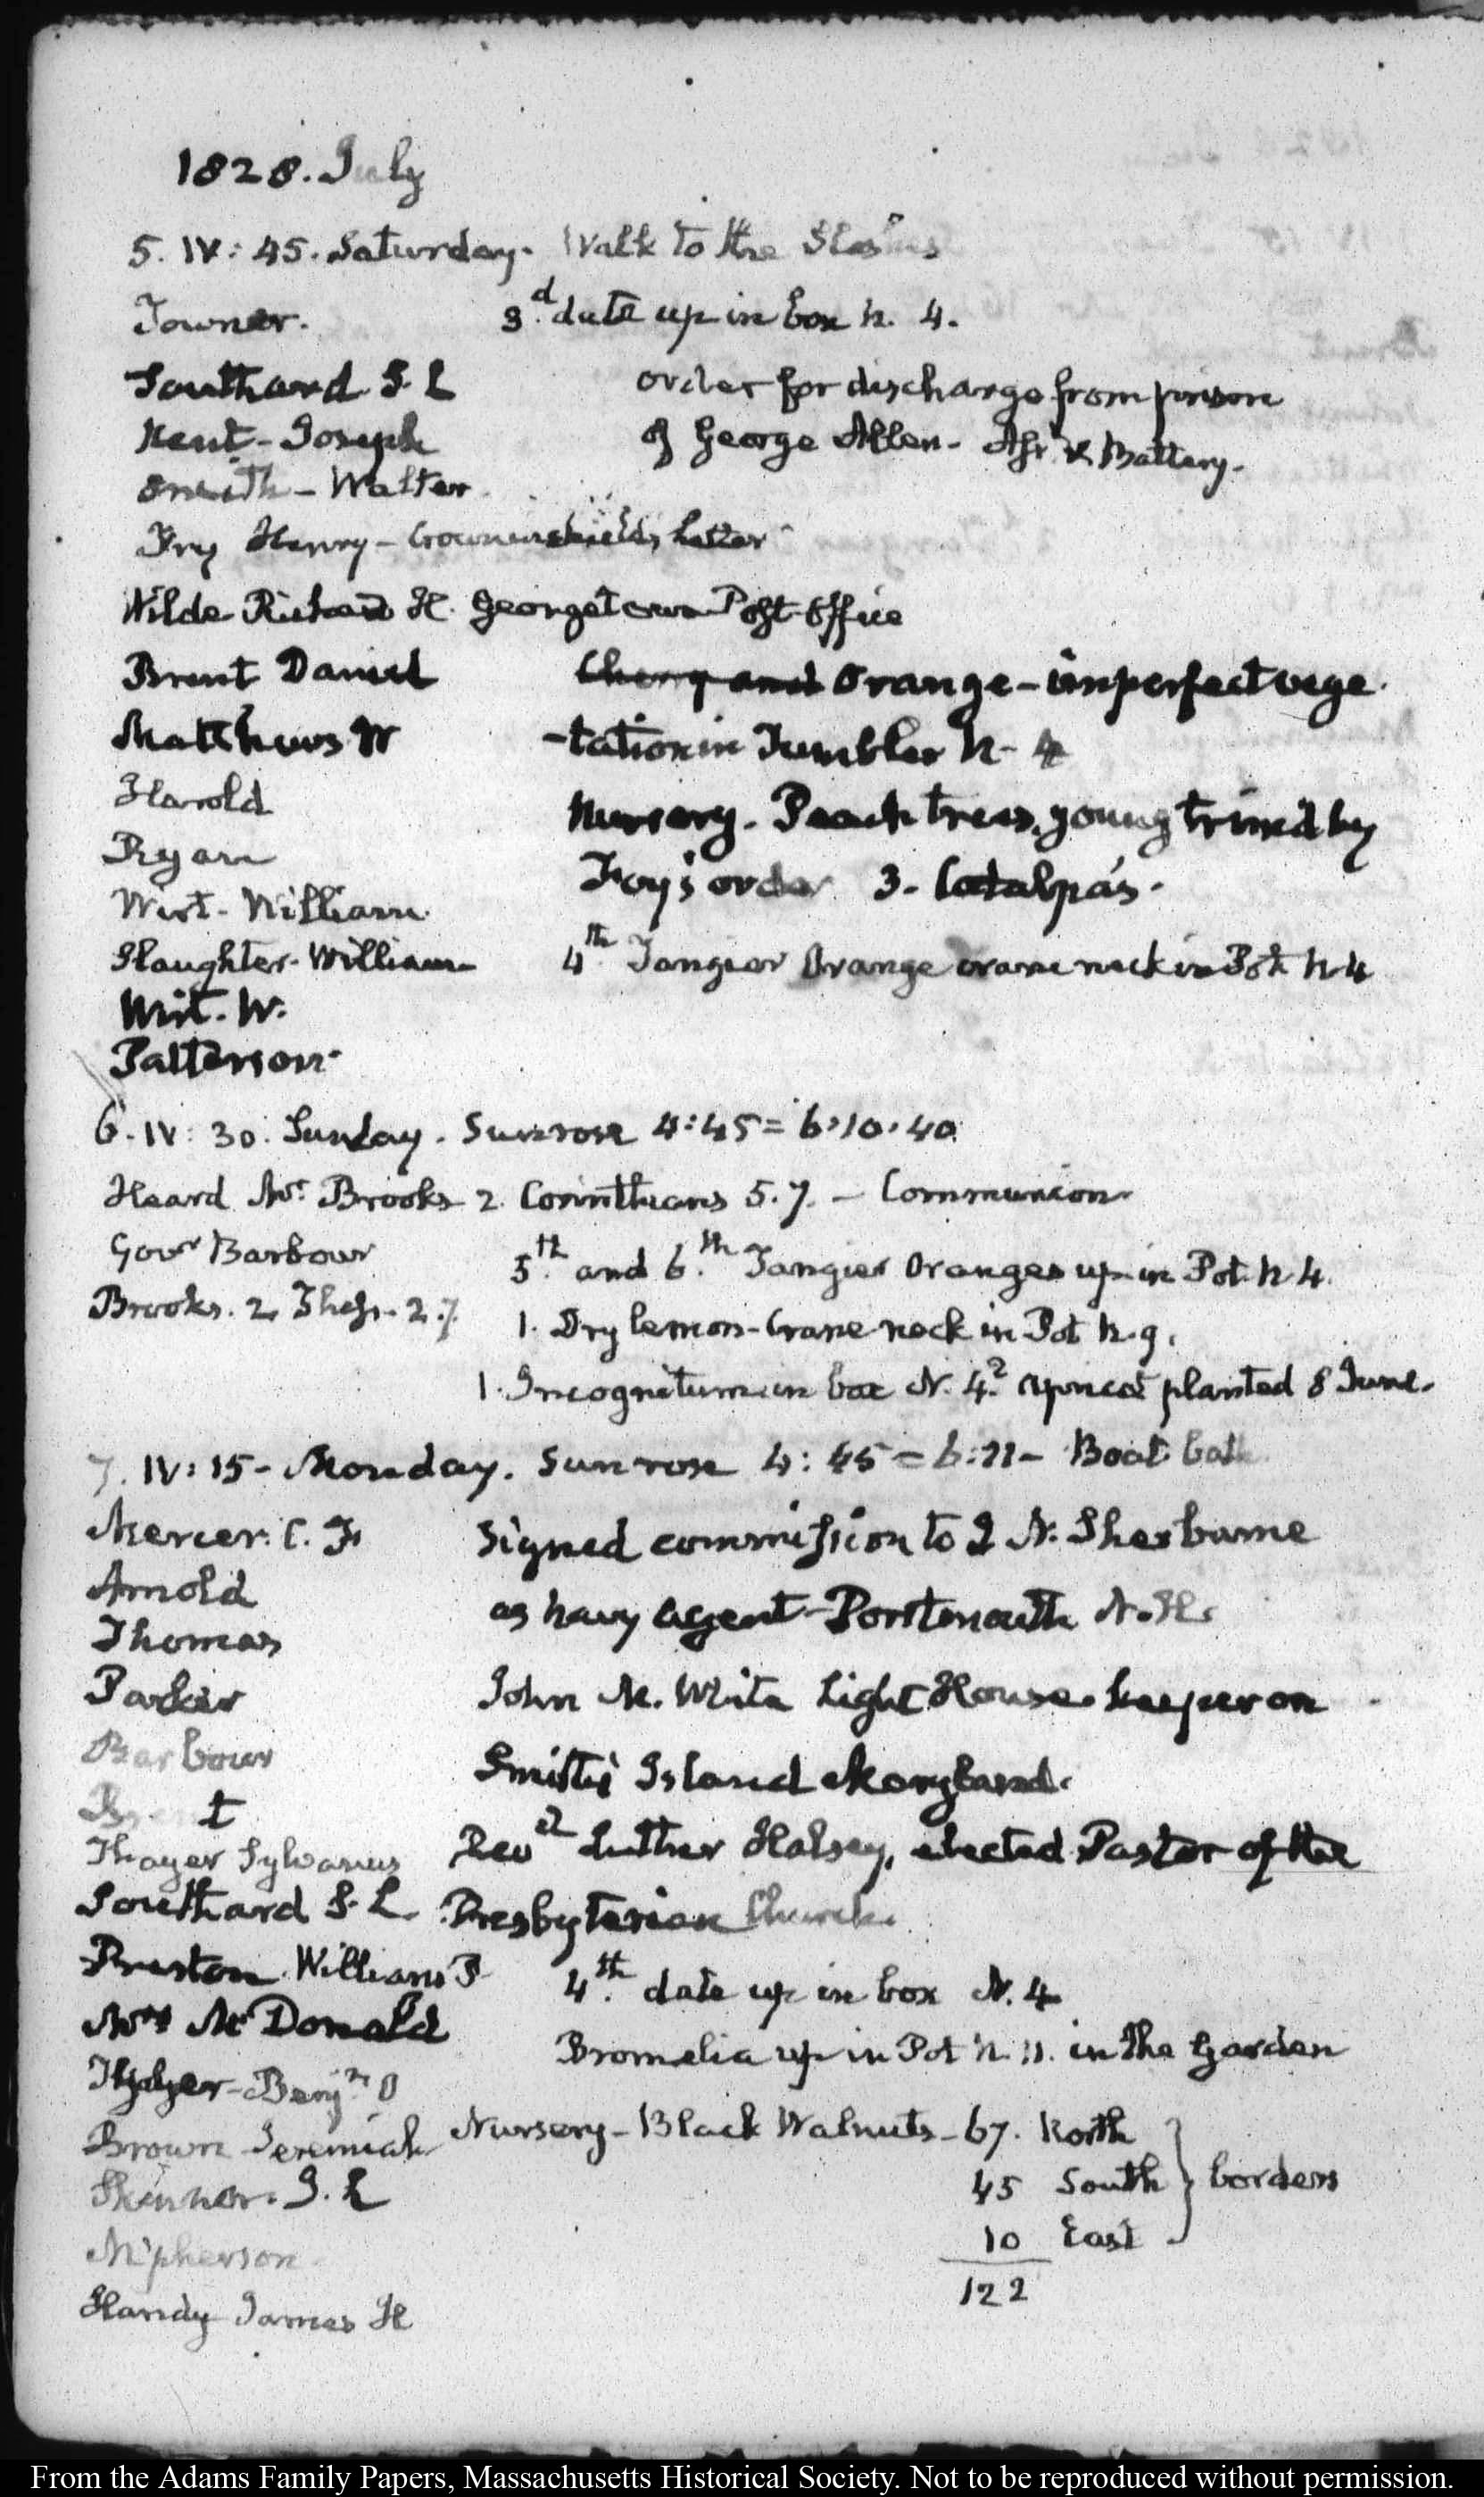 1828. July
5. IV: 45. Saturday. Walk to the
Towner. 3.d date up in box N. 4.
Southard S. L order for discharge from prison
Kent - Joseph of George Allen - & Battery.
Smith - Walter
Fry Henry - Crowninshield's letter
Wilde Richard H. Georgetown Post-Office
Brent Daniel Cherry and Orange - imperfect vege
Matthews W -tation in Tumbler N. 4
Harold Nursery. Peach trees, young trim'd by
Ryan Foy's order 3. Catalpa's.
Wirt - William
Slaughter - William 4th. Tangier Orange crane neck in Pot N 4
Wirt. W.
Patterson
6. IV: 30. Sunday. Sun rose 4:45 = 6:10.40
Heard Mr. Brooks 2. Corinthians 5.7. - Communion
Govr Barbour 5.th and 6.th Tangier Oranges up in Pot. N 4.
Brooks. 2 Thess. 2.7. 1. Dry lemon - Crane neck in Pot N. 9.
1. Incognitum in box N. 4.? apricot planted 8 June.
7. IV: 15 - Monday. Sun rose 4:45 = 6:11 - Boat bath
Mercer. C. F. Signed commission to J N. Sherburne
Arnold as Navy Agent - Portsmouth N. H.
Thomas
Parker John M. White Light House keeper on
Barbour Smith's Island Maryland.
Brent
Thayer Sylvanus Revd Luther Halsey, elected Pastor of the
Southard S. L. Presbyterian Church.
Preston William P 4.th date up in box N. 4
Mrs McDonald Bromelia up in Pot N. 11. in the Garden
Benjn O
Brown Jeremiah Nursery - Black Walnuts - 67. North
Skinner. J. L 45 South } borders
McPherson 10 East
Handy James H 122
From the Adams Family Papers, Massachusetts Historical Society. Not to be reproduced without permission.